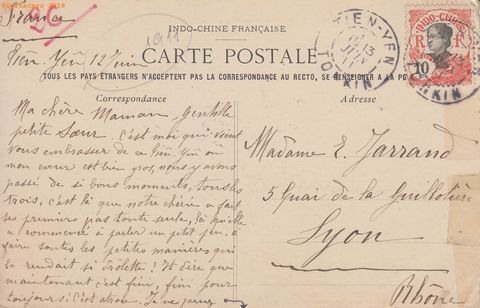 ©Cartacaro 2018
France
(1911)
INDO-CHINE FRANÇAISE
CARTE POSTALE
TOUS LES PAYS ÉTRANGERS N'ACCEPTENT PAS LA CORRESPONDANCE AU RECTO, SE RENSEIGNER A LA PO
Correspondance
Adresse
TIEN-YEN
13
TONKIN
INDO-CHINE
R F
10
TONKIN
Tiên Yên 12 Juin
Ma chère Maman, gentille
petite Sœur. C'est moi qui vient
vous embrasser de ce Tiên Yên où
mon cœur est bien gros, nous y avons
passé de si bons moments, tous les
trois, c'est là que notre chérie a fait
ses premiers pas toute seule, là qu'elle
a commencé à parler un petit peu, à
faire toutes les petites manières qui
la rendait si drôlette! Et dire que
maintenant c'est fini, fini pour
toujours! C'est atroce. Je ne peux
Madame E. Jarrand
5 Quai de la Guillotière
Lyon
Rhône